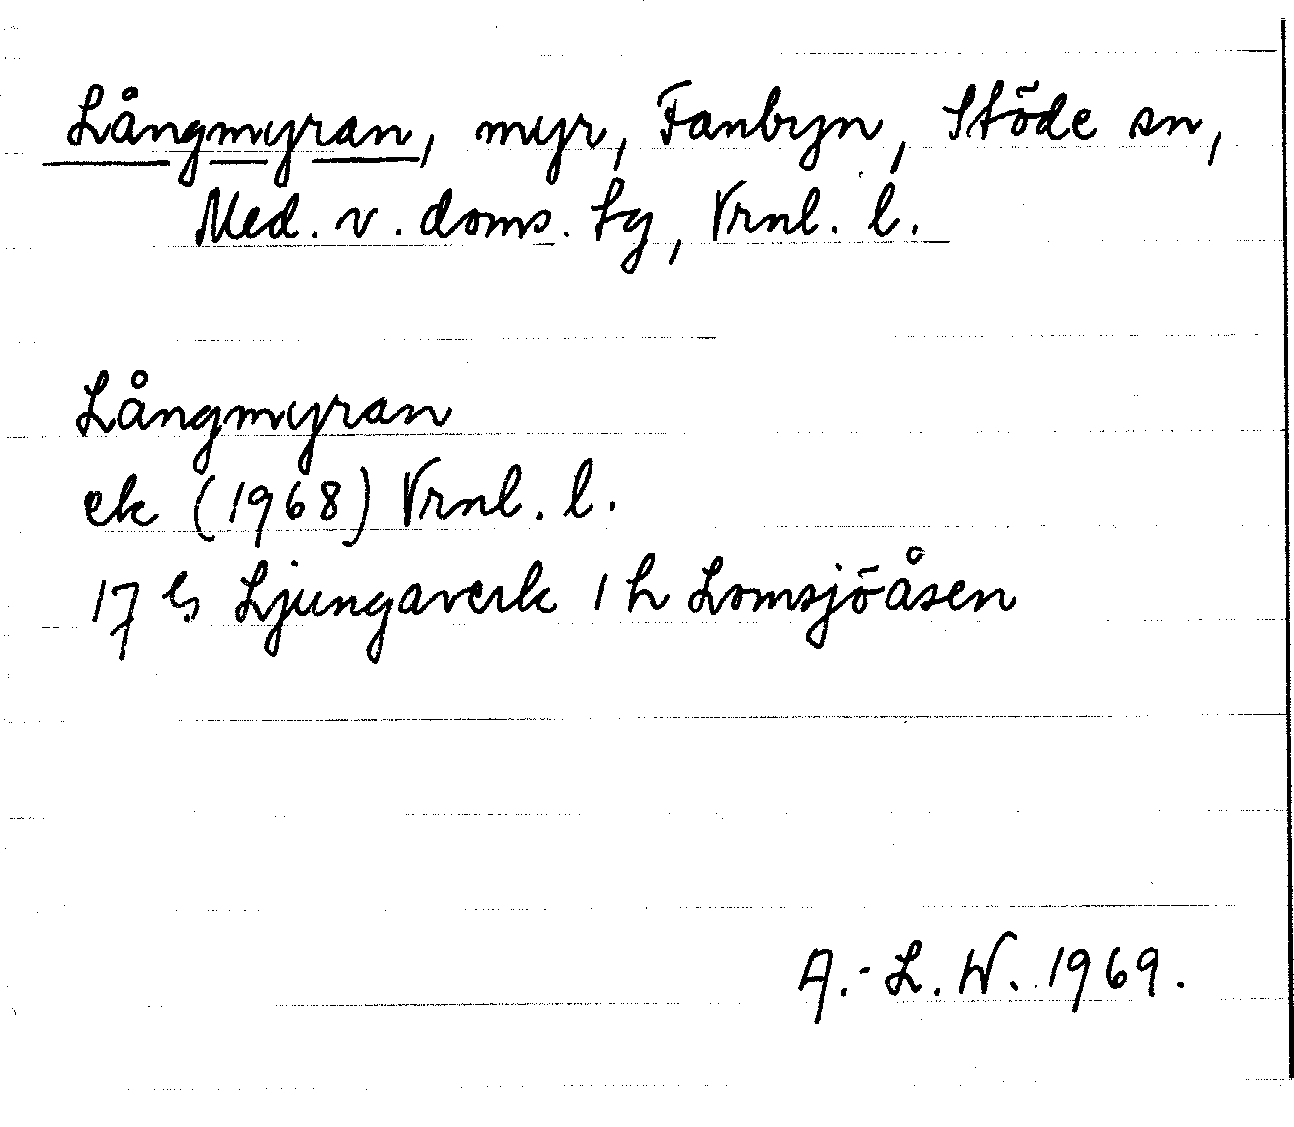 Långmyran, myr, Fanbyn, Stöde sn,
Med. v. doms. tg, Vrnl. l.
Långmyran
ek (1968) Vrnl. l.
17 G Ljungaverk 1 h Lomsjöåsen
A.-L. W. 1969.